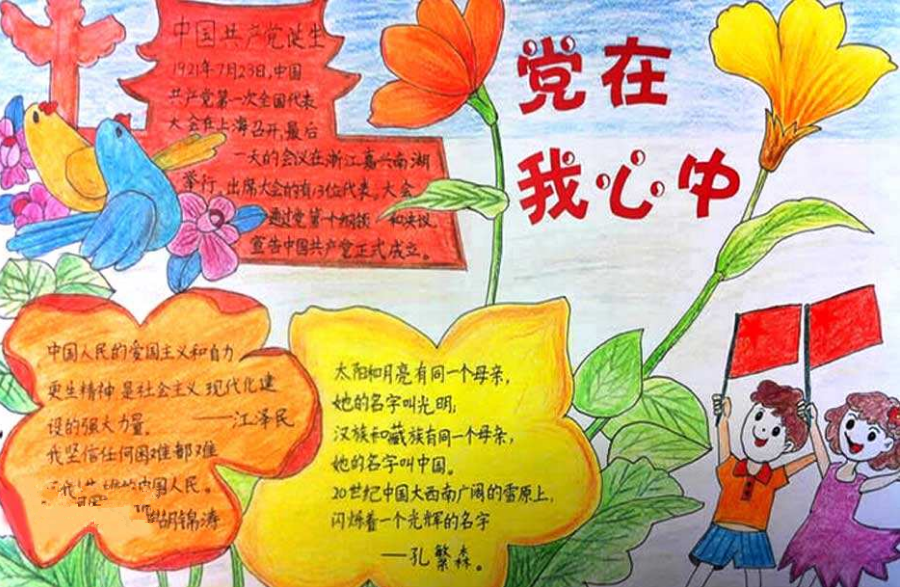 中国共产党诞生
1921年7月23日,中国
共产党第一次全国代表
大会在上海召开,最后
一天的会议在浙江嘉兴南湖
举行。出席大会的有13位代表。大会
通过党第一个纲领 和决议,
宣告中国共产党正式成立。
党在
我心中
中国人民的爱国主义和自力
更生精神 是社会主义 现代化建
设的强大力量。 ——江泽民
我坚信任何困难都难
中国人民。
胡锦涛
太阳和月亮有同一个母亲,
她的名字叫光明;
汉族和藏族有同一个母亲,
她的名字叫中国。
20世纪中国大西南广阔的雪原上,
闪烁着一个光辉的名字
——孔繁森。